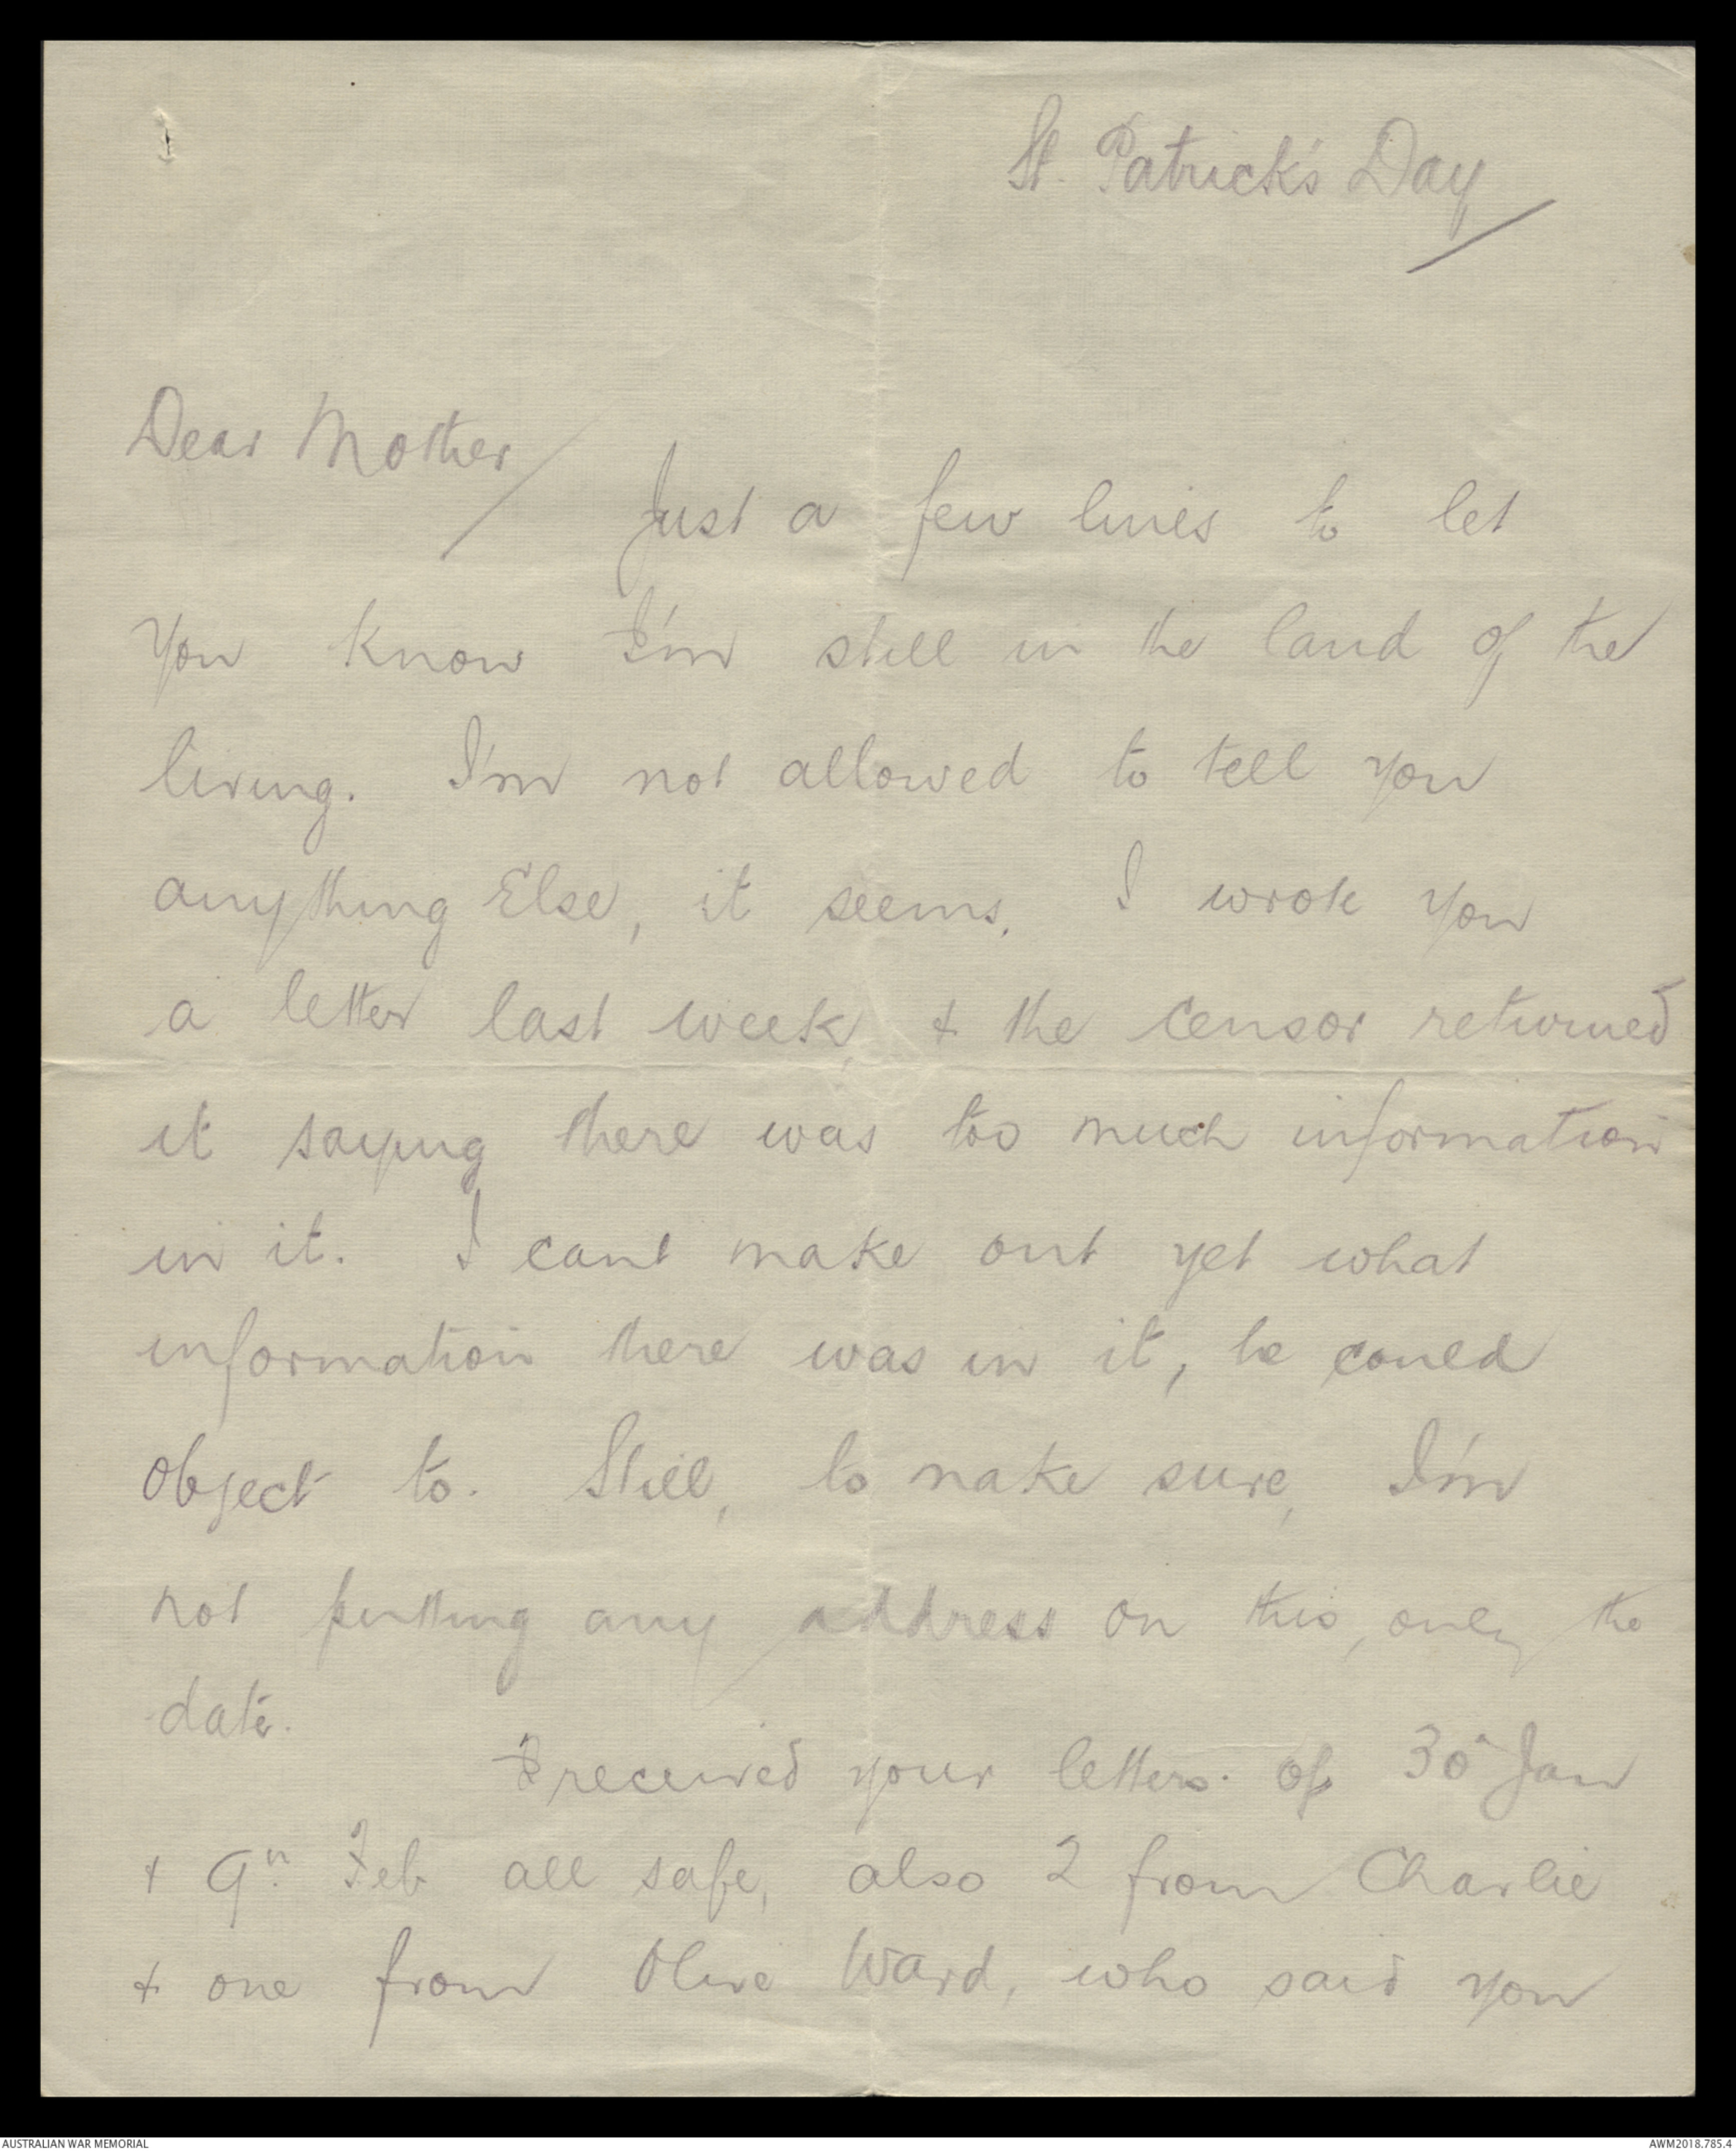 St. Patrick's Day
Dear Mother
Just a few lines to let
you know I'm still in the land of the
living. I'm not allowed to tell you
anything Else, it seems. I wrote you
a letter last week, & the censor returned
it saying there was too much information
in it. I cant make out yet what
information there was in it, he could
object to. Still, to make sure, I'm
not putting any address on this, only the
date.
I received your letters of 30th Jan
& 9th Feb all safe, also 2 from Charlie
& one from Olive Ward, who said you
AUSTRALIAN WAR MEMORIAL
AWM2018.785.4